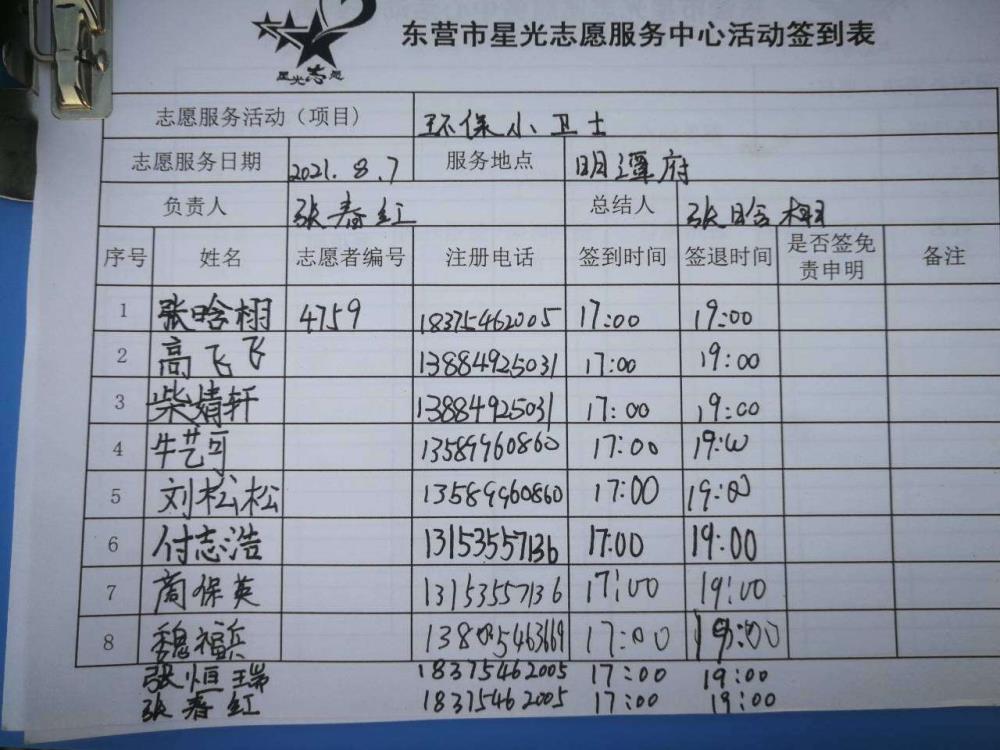 星光志愿
东营市星光志愿服务中心活动签到表
志愿服务活动（项目） 环保小卫士
志愿服务日期 2021.8.7 服务地点 明潭府
负责人 张春红 总结人 张晗栩
序号 姓名 志愿者编号 注册电话 签到时间 签退时间 是否签免责申明 备注
1 张晗栩 4759 18375462005 17:00 19:00
2 高飞飞 13884925031 17:00 19:00
3 柴婧轩 13884925031 17:00 19:00
4 牛艺可 13589960860 17:00 19:00
5 刘松松 13589960860 17:00 19:00
6 付志浩 13153557136 17:00 19:00
7 商保英 13153557136 17:00 19:00
8 魏福兵 17:00 19:00
张恒瑞 18375462005 17:00 19:00
张春红 18375462005 17:00 19:00